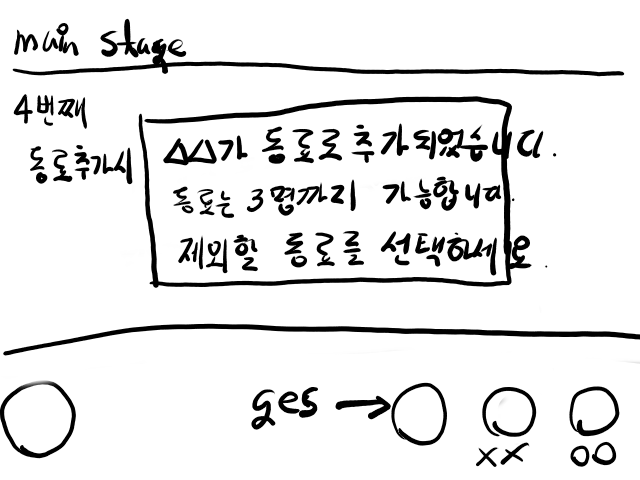 main stage
4번째
동료추가시
△△가 동료로 추가되었습니다.
동료는 3명까지 가능합니다.
제외할 동료를 선택하세요.
yes →
×× ○○